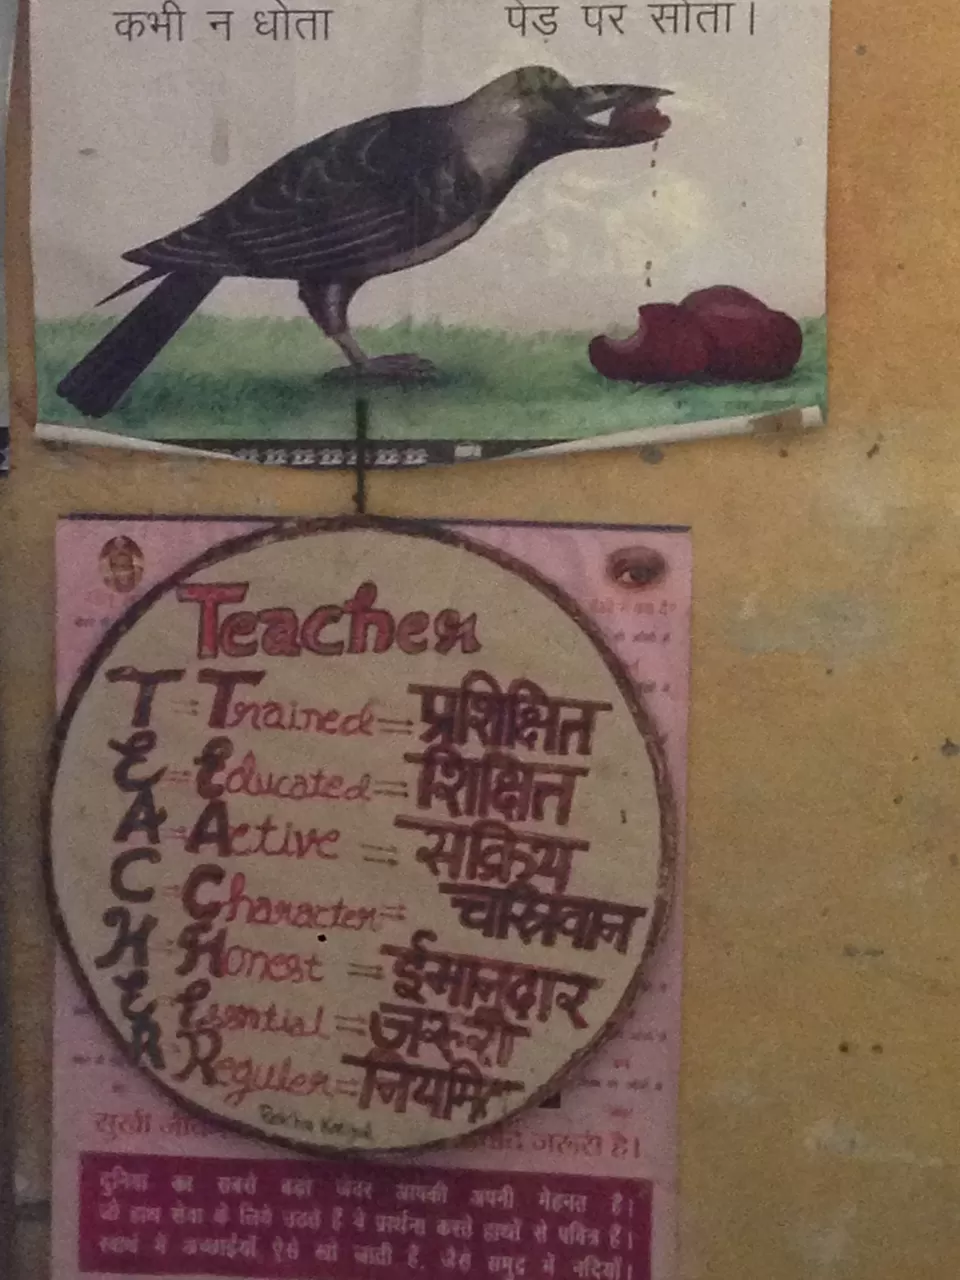 कभी न धोता पेड़ पर सोता।
Teacher
T = Trained = प्रशिक्षित
E = Educated = शिक्षित
A = Active = सक्रिय
C = Character = चरित्रवान
H = Honest = ईमानदार
E = Essential = जरूरी
R = Reguler = नियमित
सुखी जरूरी है।
दुनिया का सबसे बड़ा जेवर आपकी अपनी मेहनत है।
जो हाथ सेवा के लिये उठते हैं वे प्रार्थना करते हाथों से पवित्र हैं।
स्वार्थ में अच्छाईयाँ ऐसे खो जाती हैं, जैसे समुद्र में नदियाँ।